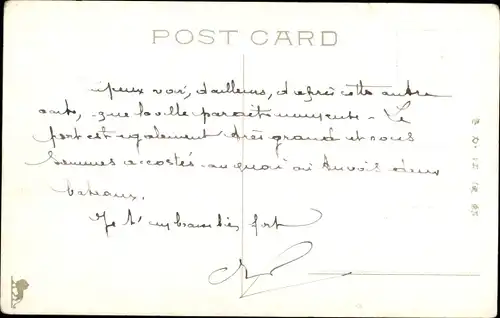 POST CARD
peux voir, d'ailleurs, d'après cette autre
carte, que la ville paraît immense - Le
port est également très grand et nous
sommes accostés au quai où tu vois deux
bateaux.
Je t'embrasse bien fort